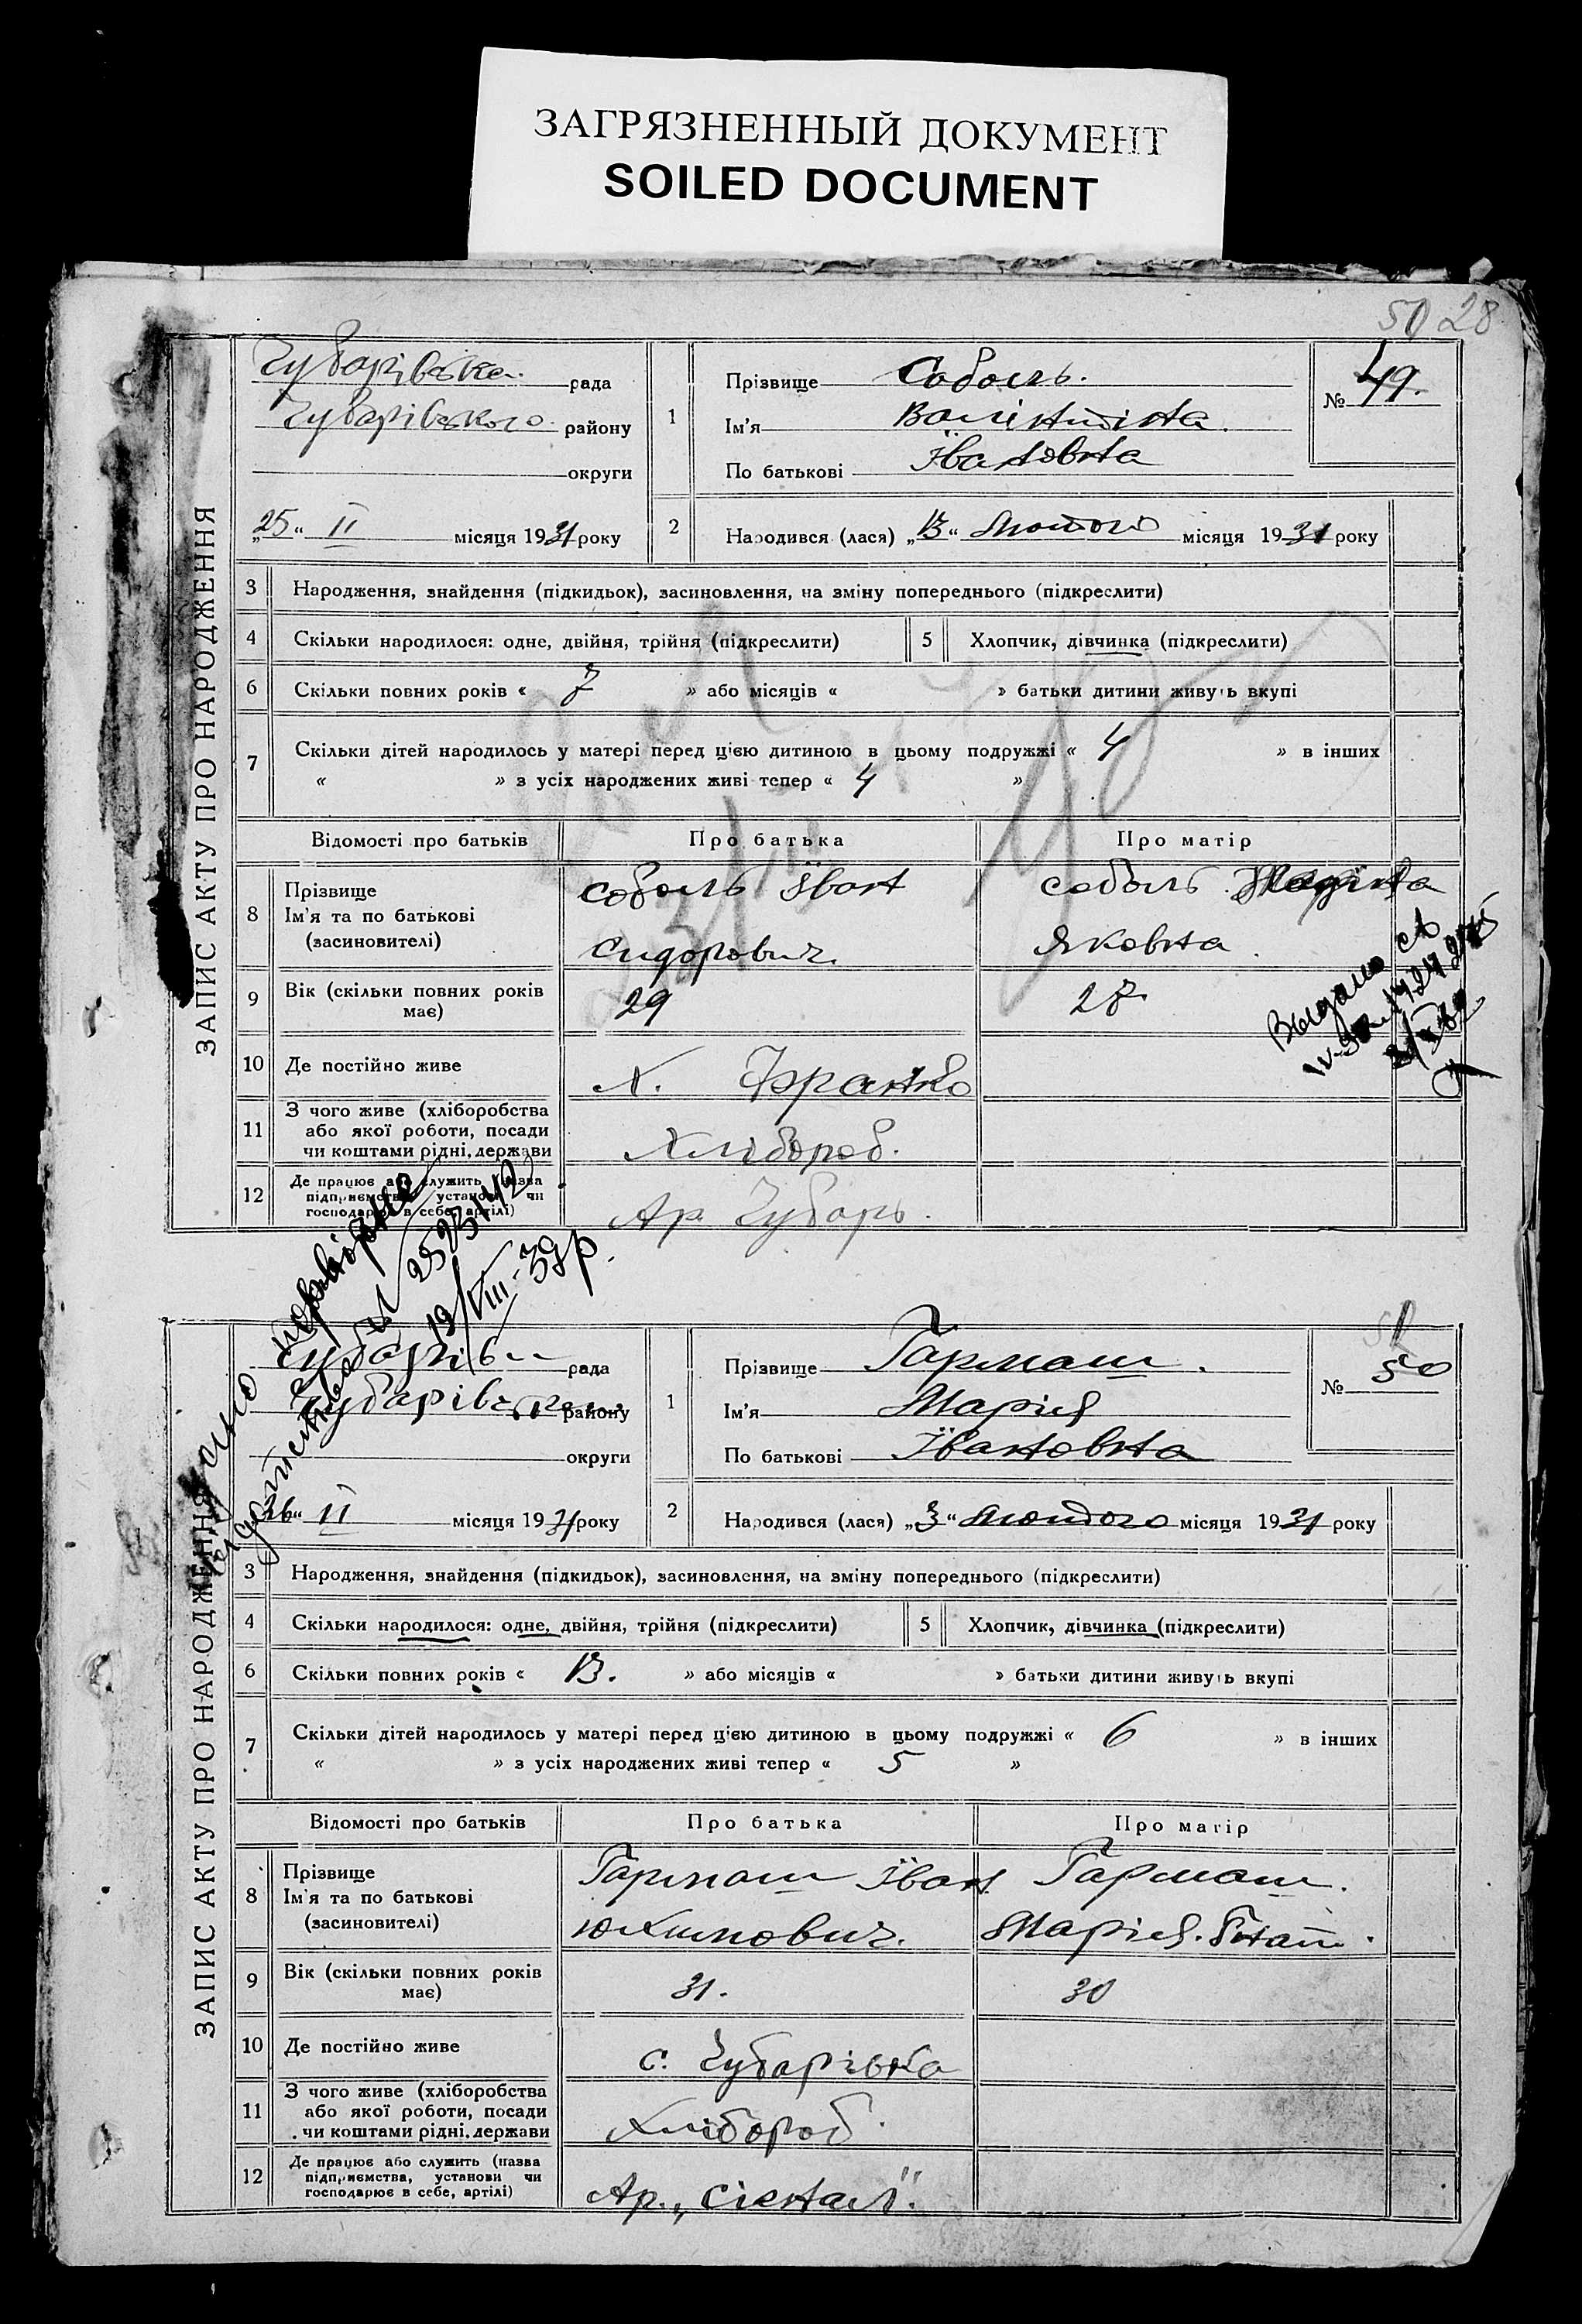 ЗАГРЯЗНЕННЫЙ ДОКУМЕНТ
SOILED DOCUMENT
50 28
ЗАПИС АКТУ ПРО НАРОДЖЕННЯ
Чубарівська рада
Чубарівського району
округи
„25“ II місяця 1931 року
1
Прізвище Соболь.
Ім'я Валінтіна.
По батькові Івановна
№ 49.
2
Народився (лася) „13“ Лютого місяця 1931 року
3 Народження, знайдення (підкидьок), засиновлення, на зміну попереднього (підкреслити)
4 Скільки народилося: одне, двійня, трійня (підкреслити) 5 Хлопчик, дівчинка (підкреслити)
6 Скільки повних років « 7 » або місяців « » батьки дитини живуть вкупі
7 Скільки дітей народилось у матері перед цією дитиною в цьому подружжі « 4 » в інших
« » з усіх народжених живі тепер « 4 »
Відомості про батьків Про батька Про матір
8 Прізвище
Ім'я та по батькові
(засиновителі)
Соболь Іван
Сидорович.
Соболь
Яковна
9 Вік (скільки повних років має) 29 28
Выдано св
10 Де постійно живе Х. Франко
11 З чого живе (хліборобства
або якої роботи, посади
чи коштами рідні, держави
Хлібороб.
12 Де працює або служить (назва
підприємства, установи чи
господарює в себе, артілі)
Ар. Чубарь.
повторне
19/VIII-39 р.
ЗАПИС АКТУ ПРО НАРОДЖЕННЯ
Чубарівс рада
Чубарівськ району
округи
„26“ II місяця 1931 року
1
Прізвище Гармаш.
Ім'я Марія
По батькові Івановна
№ 50
2
Народився (лася) „3“ Лютого місяця 1931 року
3 Народження, знайдення (підкидьок), засиновлення, на зміну попереднього (підкреслити)
4 Скільки народилося: одне, двійня, трійня (підкреслити) 5 Хлопчик, дівчинка (підкреслити)
6 Скільки повних років « 13. » або місяців « » батьки дитини живуть вкупі
7 Скільки дітей народилось у матері перед цією дитиною в цьому подружжі « 6 » в інших
« » з усіх народжених живі тепер « 5 »
Відомості про батьків Про батька Про матір
8 Прізвище
Ім'я та по батькові
(засиновителі)
Гармаш Іван
Юхимович.
Гармаш.
Марія. Гнат.
9 Вік (скільки повних років має) 31. 30
10 Де постійно живе с. Чубарівка
11 З чого живе (хліборобства
або якої роботи, посади
чи коштами рідні, держави
Хлібороб.
12 Де працює або служить (назва
підприємства, установи чи
господарює в себе, артілі)
Ар. „Сігнал".